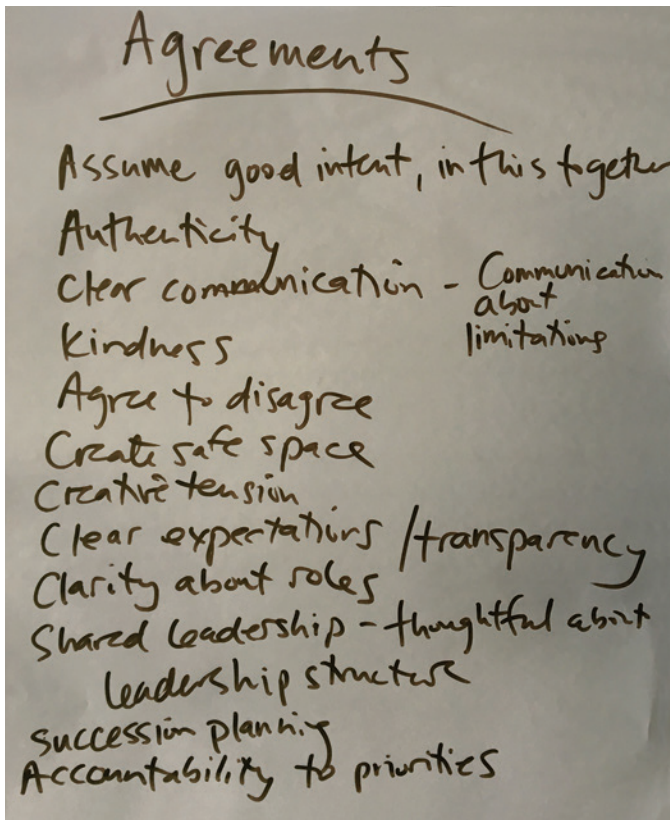 Agreements
Assume good intent, in this together
Authenticity
Clear communication - Communication
about
limitations
Kindness
Agree to disagree
Create safe space
Creative tension
Clear expectations /transparency
Clarity about roles
Shared leadership - thoughtful about
leadership structure
succession planning
Accountability to priorities